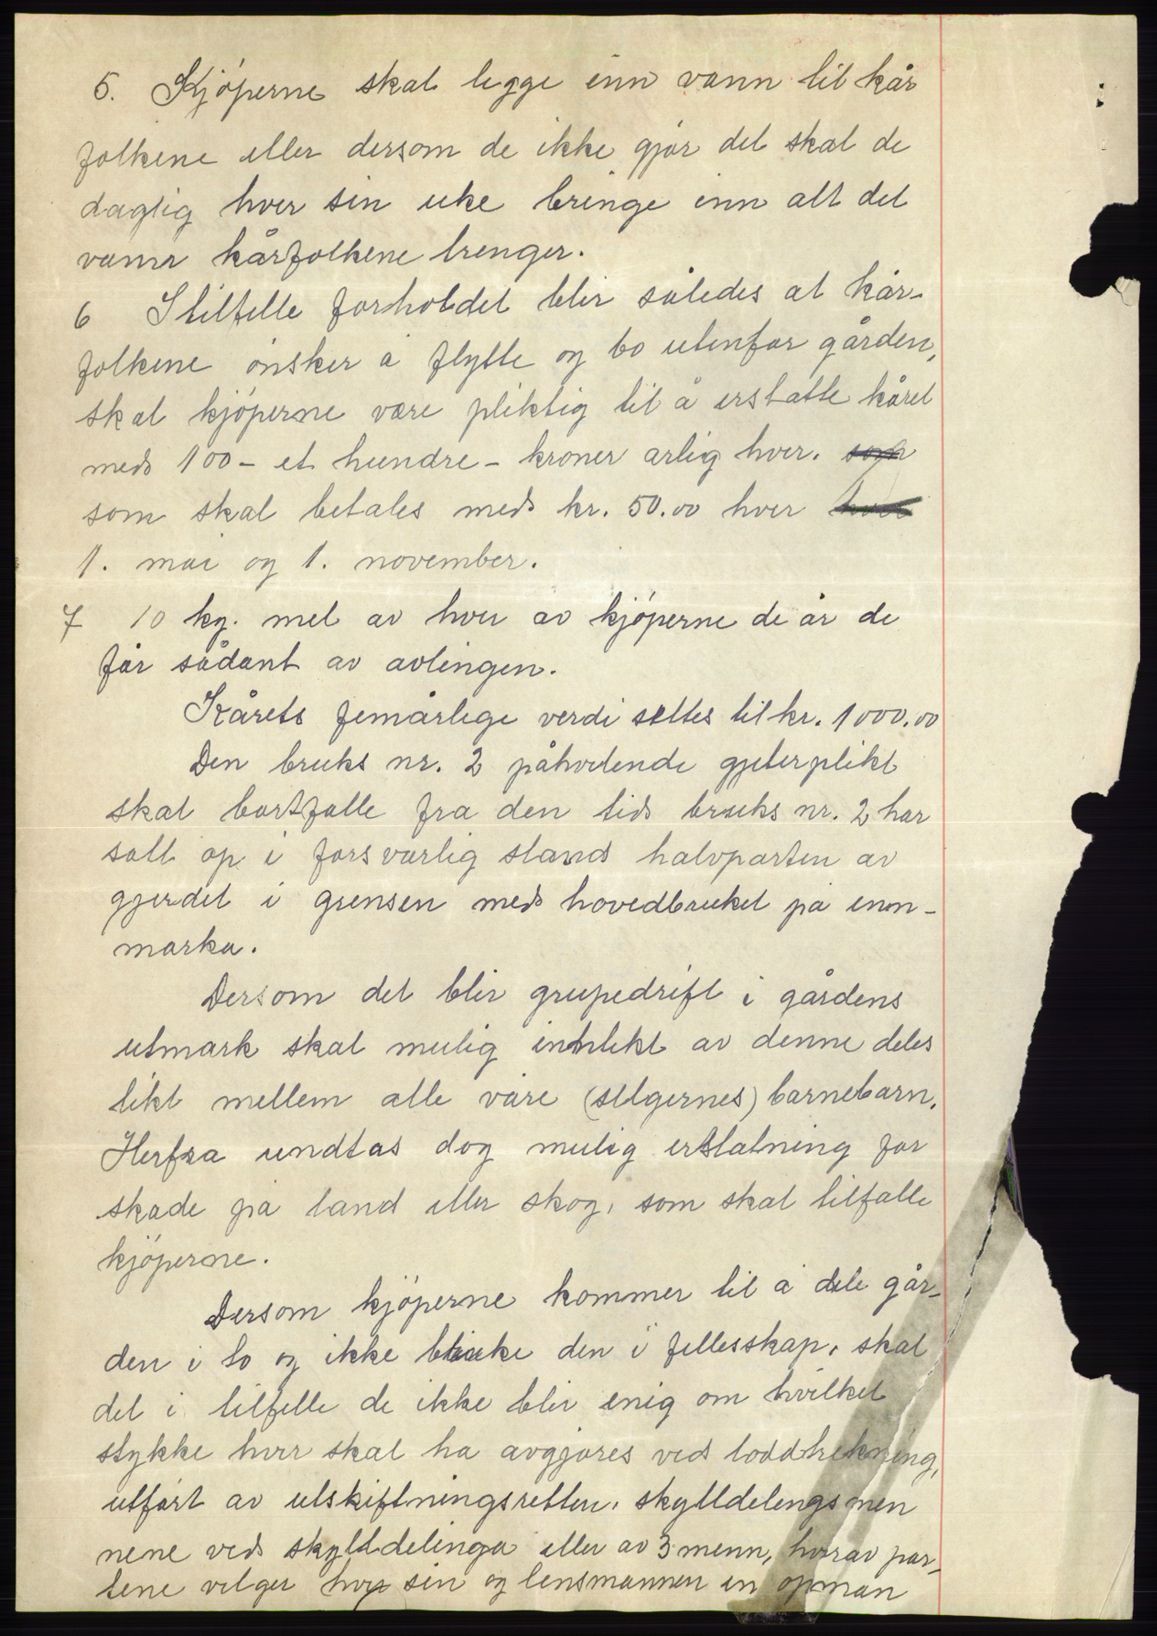 5. Kjøperne skal legge inn vann til kår
folkene eller dersom de ikke gjør det skal de
daglig hver sin uke bringe inn alt det
vann kårfolkene trenger.
6 I tilfelle forholdet blir således at kår-
folkene ønsker å flytte og bo utenfor gården,
skal kjøperne være pliktig til å erstatte kåret
med 100 - et hundre - kroner årlig hver. som
som skal betales med kr. 50.00 hver
1. mai og 1. november.
7 10 kg. mel av hver av kjøperne de år de
får sådant av avlingen.
Kårets femårlige verdi settes til kr. 1000.00
Den bruks nr. 2 påhvilende gjeterplikt
skal bortfalle fra den tid bruks nr. 2 har
satt op i forsvarlig stand halvparten av
gjerdet i grensen med hovedbruket på inn-
marka.
Dersom det blir grupedrift i gårdens
utmark skal mulig inntekt av denne deles
likt mellem alle våre (selgernes) barnebarn.
Herfra undtas dog mulig erstatning for
skade på land eller skog, som skal tilfalle
kjøperne.
Dersom kjøperne kommer til å dele går-
den i to og ikke bruke den i fellesskap, skal
det i tilfelle de ikke blir enig om hvilket
stykke hver skal ha avgjøres ved loddtrekning,
utført av utskiftningsretten, skylldelingsmen
nene ved skylldelinga eller av 3 menn, hvorav par-
tene velger hver sin og lensmannen en opman